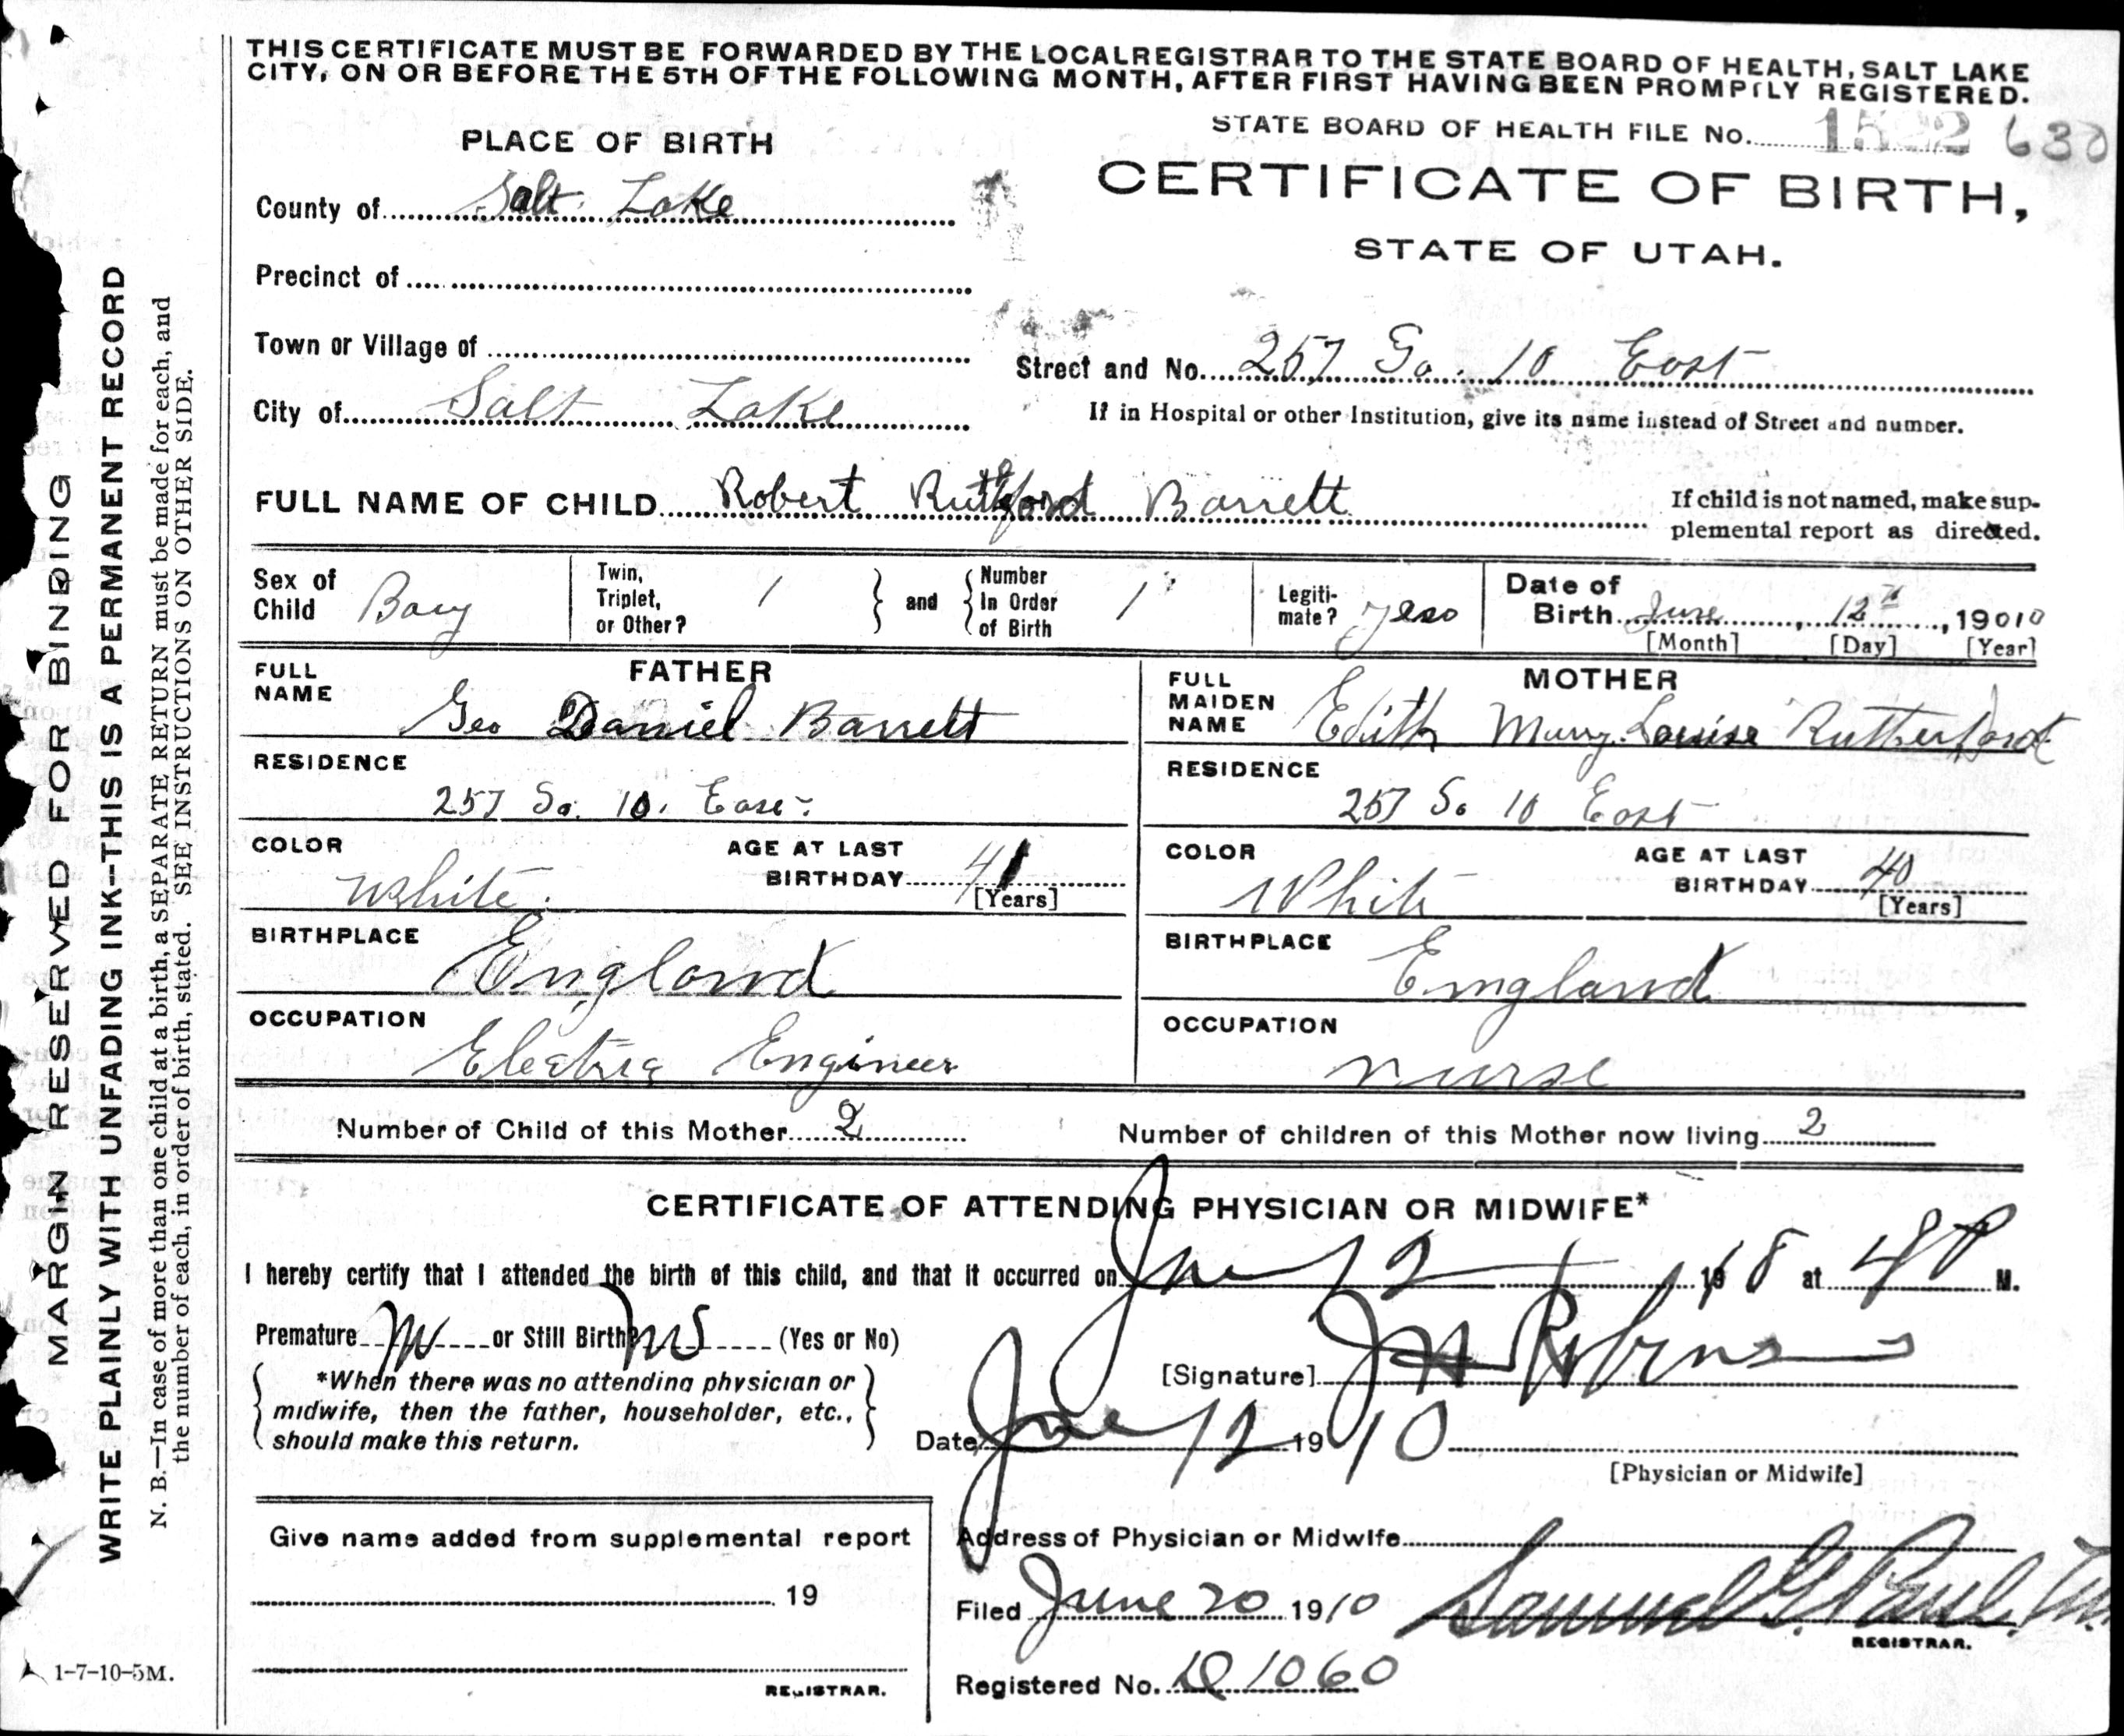 THIS CERTIFICATE MUST BE FORWARDED BY THE LOCAL REGISTRAR TO THE STATE BOARD OF HEALTH, SALT LAKE
CITY, ON OR BEFORE THE 5TH OF THE FOLLOWING MONTH, AFTER FIRST HAVING BEEN PROMPTLY REGISTERED.
STATE BOARD OF HEALTH FILE No. 630
PLACE OF BIRTH
CERTIFICATE OF BIRTH,
STATE OF UTAH.
County of Salt Lake
Precinct of
Town or Village of
Street and No. 257 So. 10 East
City of Salt Lake
If in Hospital or other Institution, give its name instead of Street and number.
FULL NAME OF CHILD Robert Rutherford Barrett
If child is not named, make sup-
plemental report as directed.
Sex of Child Boy
Twin, Triplet, or Other? 1
and
Number In Order of Birth 1
Legiti-mate? yes
Date of Birth June 12th, 19010
[Month] [Day] [Year]
FATHER
FULL NAME Geo Daniel Barrett
RESIDENCE
257 So. 10. East
COLOR White
AGE AT LAST BIRTHDAY 41
[Years]
BIRTHPLACE England
OCCUPATION Electric Engineer
MOTHER
FULL MAIDEN NAME Edith Mary Louise Rutherford
RESIDENCE
257 So 10 East
COLOR White
AGE AT LAST BIRTHDAY 40
[Years]
BIRTHPLACE England
OCCUPATION nurse
Number of Child of this Mother 2
Number of children of this Mother now living 2
CERTIFICATE OF ATTENDING PHYSICIAN OR MIDWIFE*
I hereby certify that I attended the birth of this child, and that it occurred on June 12 19 at 4 P M.
Premature or Still Birth? (Yes or No)
*When there was no attending physician or
midwife, then the father, householder, etc.,
should make this return.
[Signature]
Date June 12 1910
[Physician or Midwife]
Give name added from supplemental report
19
REGISTRAR.
Address of Physician or Midwife
Filed June 20 1910 Samuel G. Paul.
REGISTRAR.
Registered No. 1060
1-7-10-5M.
MARGIN RESERVED FOR BINDING
WRITE PLAINLY WITH UNFADING INK--THIS IS A PERMANENT RECORD
N. B.—In case of more than one child at a birth, a SEPARATE RETURN must be made for each, and
the number of each, in order of birth, stated. SEE INSTRUCTIONS ON OTHER SIDE.